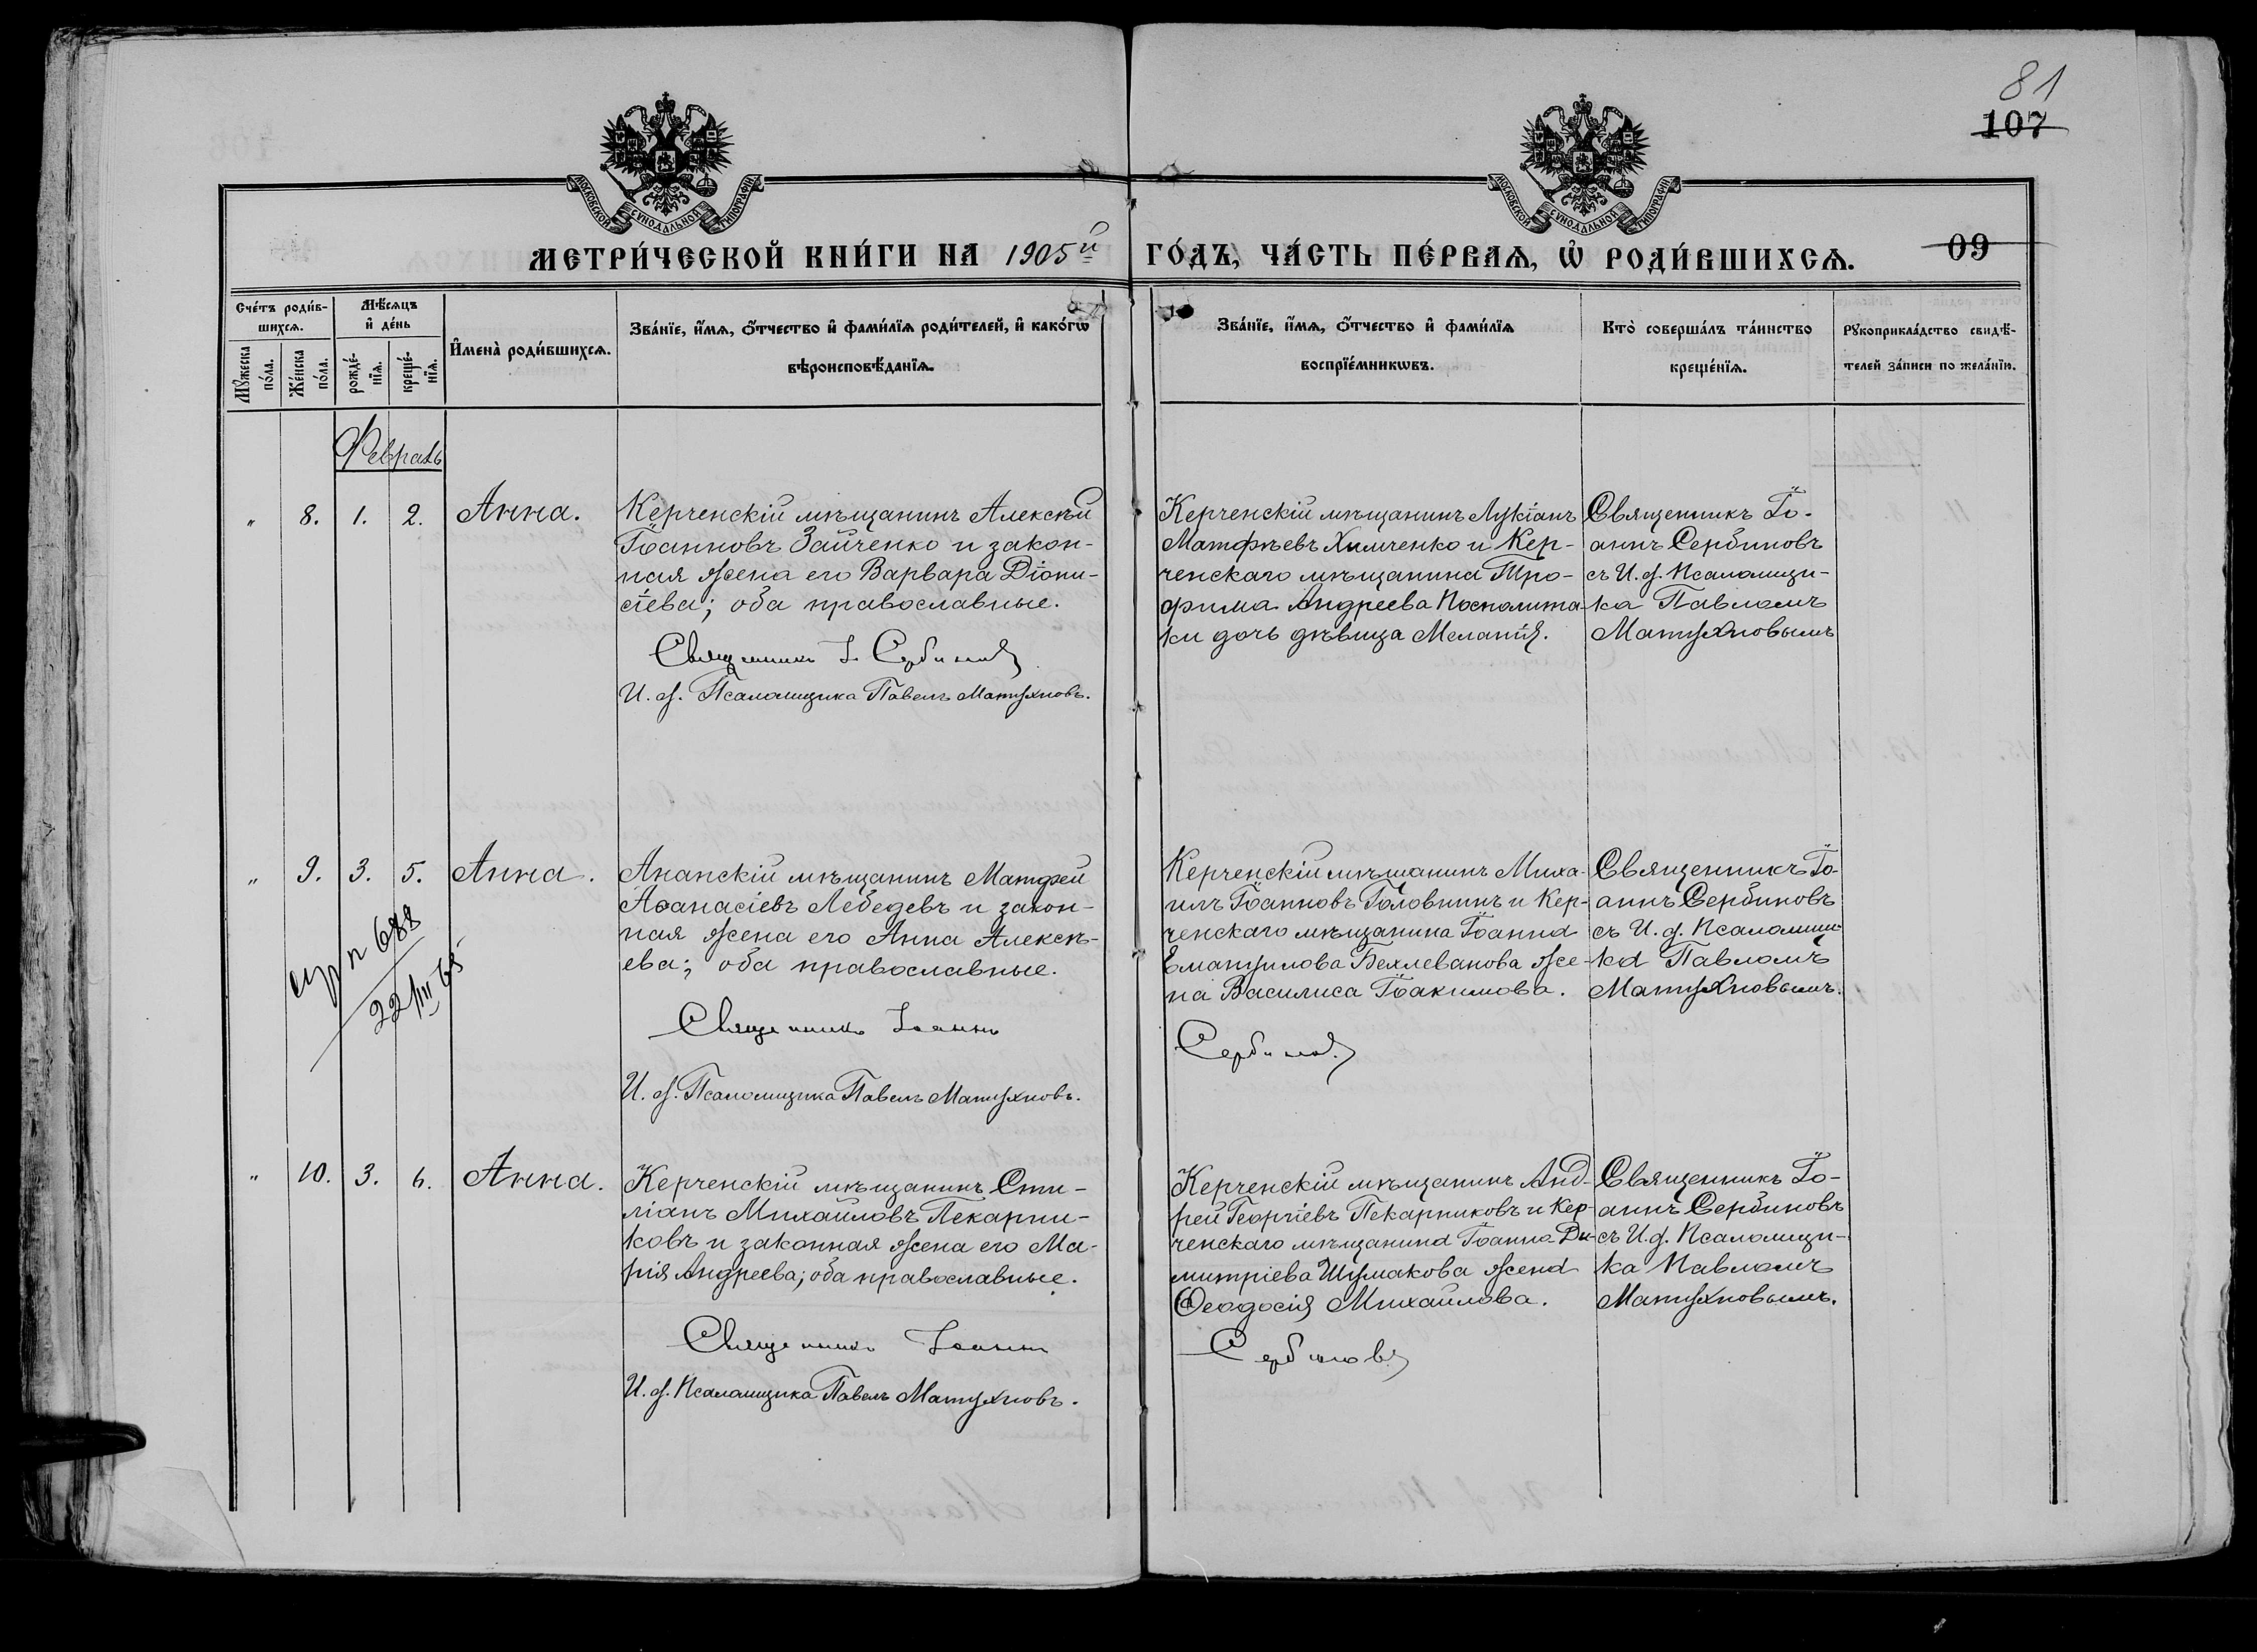 81
107
МОСКОВСКОЙ СУНОДАЛЬНОЙ ТИПОГРАФІИ
МОСКОВСКОЙ СУНОДАЛЬНОЙ ТИПОГРАФІИ
МЕТРИ́ЧЕСКОЙ КНИ́ГИ НА 1905й ГО́ДЪ, ЧА́СТЬ ПЕ́РВАѦ, Ѡ҆ РОДИ́ВШИХСѦ.
09
Сче́тъ роди́в-
шихсѧ.
Мѣ́сѧцъ
и҆ де́нь
Мꙋ́жеска
по́ла.
Же́нска
по́ла.
рожде́-
нїѧ.
креще́-
нїѧ.
И҆мена̀ роди́вшихсѧ.
Зва́нїе, и҆́мѧ, о҆́тчество и҆ фами́лїѧ роди́телей, и҆ како́гѡ
вѣроисповѣ́данїѧ.
Зва́нїе, и҆́мѧ, о҆́тчество и҆ фами́лїѧ
воспрїе́мникѡвъ.
Кто̀ соверша́лъ та́инство
креще́нїѧ.
Рꙋкоприкла́дство свидѣ́-
телей за́писи по жела́нїю.
Февраль
" 8. 1. 2. Анна.
Керченскій мѣщанинъ Алексѣй
Іоанновъ Зайченко и закон-
ная жена его Варвара Діони-
сіева; оба православные.
Священникъ І. Сербиновъ
И. д. Псаломщика Павелъ Матухновъ.
Керченскій мѣщанинъ Лукіанъ
Матфѣевъ Химченко и Кер-
ченскаго мѣщанина Тро-
фима Андреева Посполита
ки дочь дѣвица Меланія.
Священникъ Іо-
аннъ Сербиновъ
съ И. д. Псаломщи-
ка Павломъ
Матухновымъ
" 9. 3. 5. Анна.
n 688
22/III 65
Анапскій мѣщанинъ Матфей
Аѳанасіевъ Лебедевъ и закон-
ная жена его Анна Алексѣ-
ева; оба православные.
Священникъ Іоаннъ
И. д. Псаломщика Павелъ Матухновъ.
Керченскій мѣщанинъ Миха-
илъ Іоанновъ Головнинъ и Кер-
ченскаго мѣщанина Іоанна
Емануилова Бехлеванова же-
на Василиса Іоакимова.
Сербиновъ
Священникъ Іо-
аннъ Сербиновъ
съ И. д. Псаломщи-
ка Павломъ
Матухновымъ.
" 10. 3. 6. Анна.
Керченскій мѣщанинъ Сти-
ліанъ Михаиловъ Пекарни-
ковъ и законная жена его Ма-
рія Андреева; оба православные.
Священникъ Іоаннъ
И. д. Псаломщика Павелъ Матухновъ.
Керченскій мѣщанинъ Анд-
рей Георгіевъ Пекарниковъ и Кер-
ченскаго мѣщанина Іоанна Ди-
митріева Шумакова жена
Ѳеодосія Михаилова.
Сербиновъ
Священникъ Іо-
аннъ Сербиновъ
съ И. д. Псаломщи-
ка Павломъ
Матухновымъ.